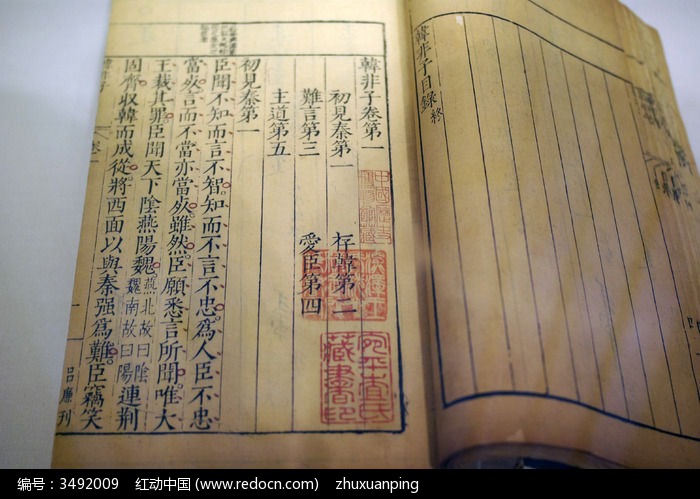 韓非子目錄終
韓非子卷第一
初見秦第一 存韓第二
難言第三 愛臣第四
主道第五
初見秦第一
臣聞不知而言不智知而不言不忠爲人臣不忠
當死言而不當亦當死雖然臣願悉言所聞唯大
王裁其罪臣聞天下陰燕陽魏燕北故曰陰魏南故曰陽連荆
固齊收韓而成從將西面以與秦强爲難臣竊笑
宛平查氏
藏書印
编号：3492009 红动中国 (www.redocn.com) zhuxuanping